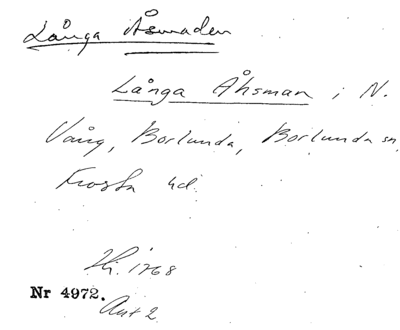 Långa Åsmaden
Långa Åhsman i N.
Vång, Borlunda, Borlunda sn,
Frosta hd.
Hi. 1768
Nr 4972.
Akt 2